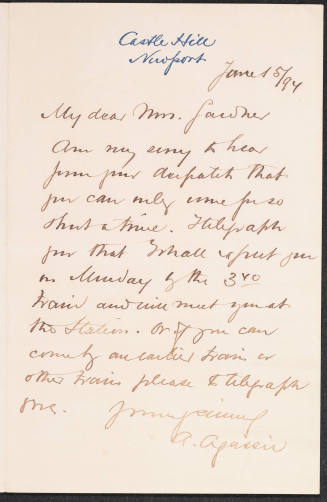 Castle Hill
Newport
June 15/94
My dear Mrs. Gardner
Am very sorry to hear
from your despatch that
you can only come for so
short a time. I telegraph
you that I shall expect you
on Monday by the 3 40
train and will meet you at
the Station. Or if you can
come by an earlier train or
other train please to telegraph
me.
A. Agassiz